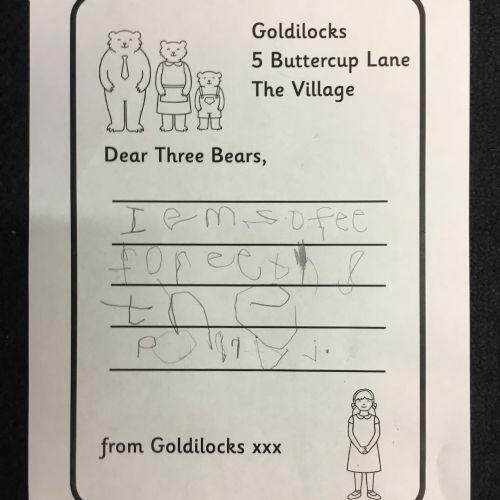 Goldilocks
5 Buttercup Lane
The Village
Dear Three Bears,
I em sofee
for eeting
the
from Goldilocks xxx